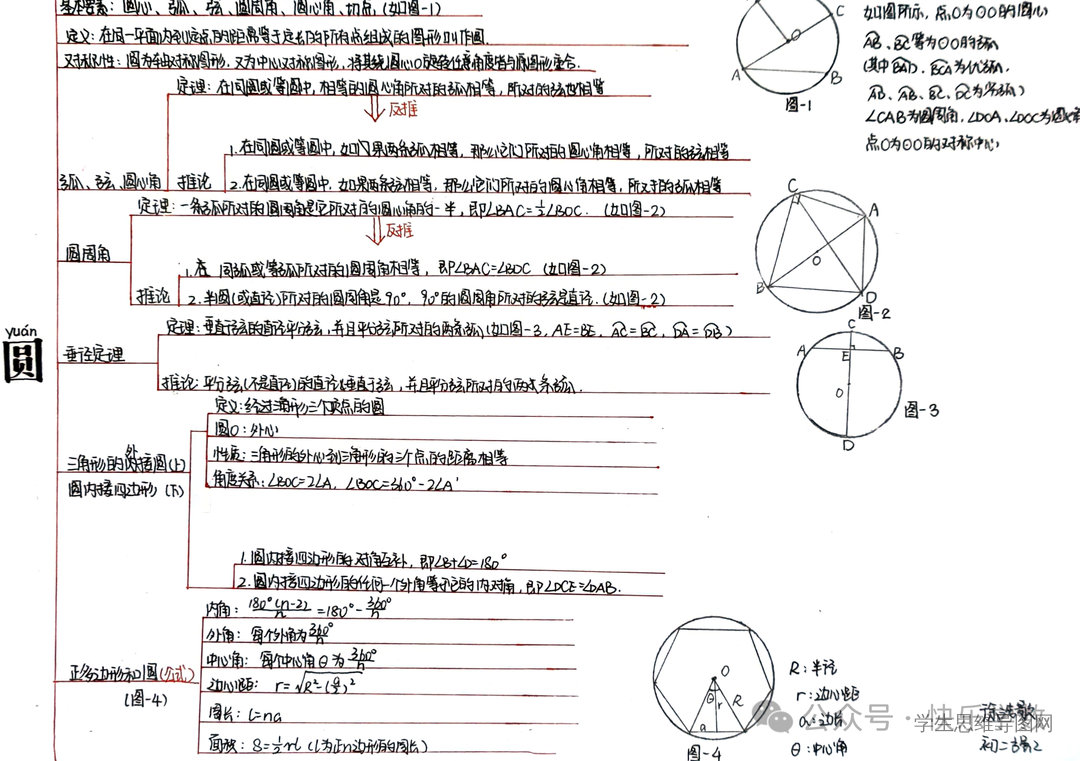 基本要素：圆心、弧、弦、圆周角、圆心角、切点（如图-1）
定义：在同一平面内到定点的距离等于定长的所有点组成的图形叫作圆.
对称性：圆为轴对称图形，又为中心对称图形，将其绕圆心O旋转任意角度皆与原图形重合.
定理：在同圆或等圆中，相等的圆心角所对的弧相等，所对的弦也相等
反推
弧、弦、圆心角
推论
1.在同圆或等圆中，如果两条弧相等，那么它们所对的圆心角相等，所对的弦相等
2.在同圆或等圆中，如果两条弦相等，那么它们所对的圆心角相等，所对的弧相等
圆周角
定理：一条弧所对的圆周角是它所对的圆心角的一半，即∠BAC=½∠BOC.（如图-2）
反推
推论
1.在 同弧或等弧所对的圆周角相等，即∠BAC=∠BDC（如图-2）
2.半圆（或直径）所对的圆周角是90°，90°的圆周角所对的弦是直径.（如图-2）
yuán
圆
垂径定理
定理：垂直弦的直径平分弦，并且平分弦所对的两条弧（如图-3，AE=BE，AC=BC，DA=DB）
推论：平分弦（不是直径）的直径垂直于弦，并且平分弦所对的两条弧.
三角形的外接圆（上）
圆内接四边形（下）
定义：经过三角形三个顶点的圆
圆O：外心
性质：三角形的外心到三角形的三个点的距离相等
角度关系：∠BOC=2∠A，∠BOC=360°-2∠A'
1.圆内接四边形的对角互补，即∠B+∠D=180°
2.圆内接四边形的任何一个外角等于它的内对角，即∠DCE=∠DAB.
正多边形和圆（公式）
（图-4）
内角：180°(n-2)/n=180°-360°/n
外角：每个外角为360°/n
中心角：每个中心角θ为360°/n
边心距：r=√R²-(a/2)²
周长：l=na
面积：S=½rl（l为正n边形的周长）
C
O
A
B
图-1
如图所示，点O为⊙O的圆心
AB、BC等为⊙O的弧
（其中BAD、BCA为优弧，
AD、AB、BC、DC为劣弧）
∠CAB为圆周角，∠DOA、∠DOC为圆心角
点O为⊙O的对称中心
C
A
O
B
D
图-2
C
A
E
B
O
D
图-3
O
θ
r
R
a
图-4
R：半径
r：边心距
a：边长
θ：中心角
公众号·快乐
学生思维导图网